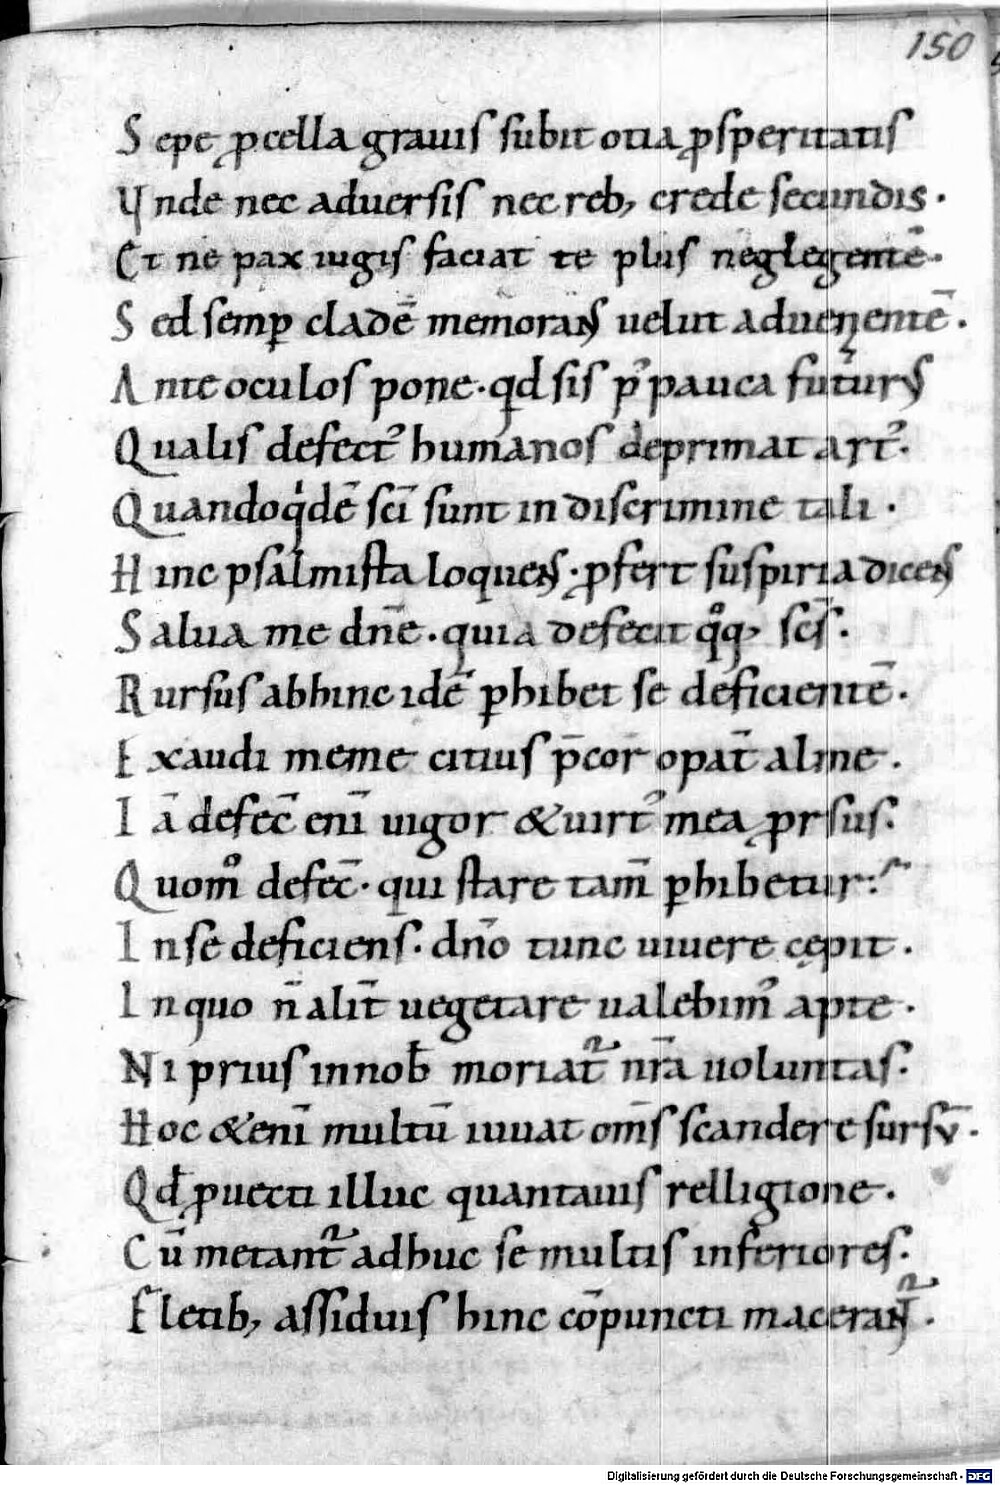 150
Sepe ꝓcella grauis subit otia ꝓsperitatis
Vnde nec aduersis nec reb; crede secundis.
Et ne pax iugis faciat te plus neglegentē.
Sed semꝑ cladē memorans uelut aduenientē.
Ante oculos pone. qd sis p᾿ pauca futurus
Qualis defect᾿ humanos deprimat art᾿.
Quandoq'dē sc̄i sunt in discrimine tali.
Hinc psalmista loquens. ꝓfert suspiria dicens
Salua me dn̄e. quia defecit qͦq; sc̄s.
Rursus abhinc idē ꝑhibet se deficientē.
Exaudi meme citius p̄cor opat̄ alme.
Iā defec̄ enī uigor & uirt᾿ mea ꝓrsus.
Quom̊ defec̄. qui stare tam̄ ꝑhibetur:
In se deficiens. dn̄o tunc uiuere cępit.
In quo n̄ alit̄ uegetare ualebim᾿ apte.
Ni prius in nob̄ moriat᷑ nr̄a uoluntas.
Hoc &enī multū iuuat om̄s scandere sursū.
Qđ ꝓuecti illuc quantauis relligione.
Cū metant᷑ adhuc se multis inferiores.
Fletib; assiduis hinc cōpuncti macerant᷑.
Digitalisierung gefördert durch die Deutsche Forschungsgemeinschaft - DFG